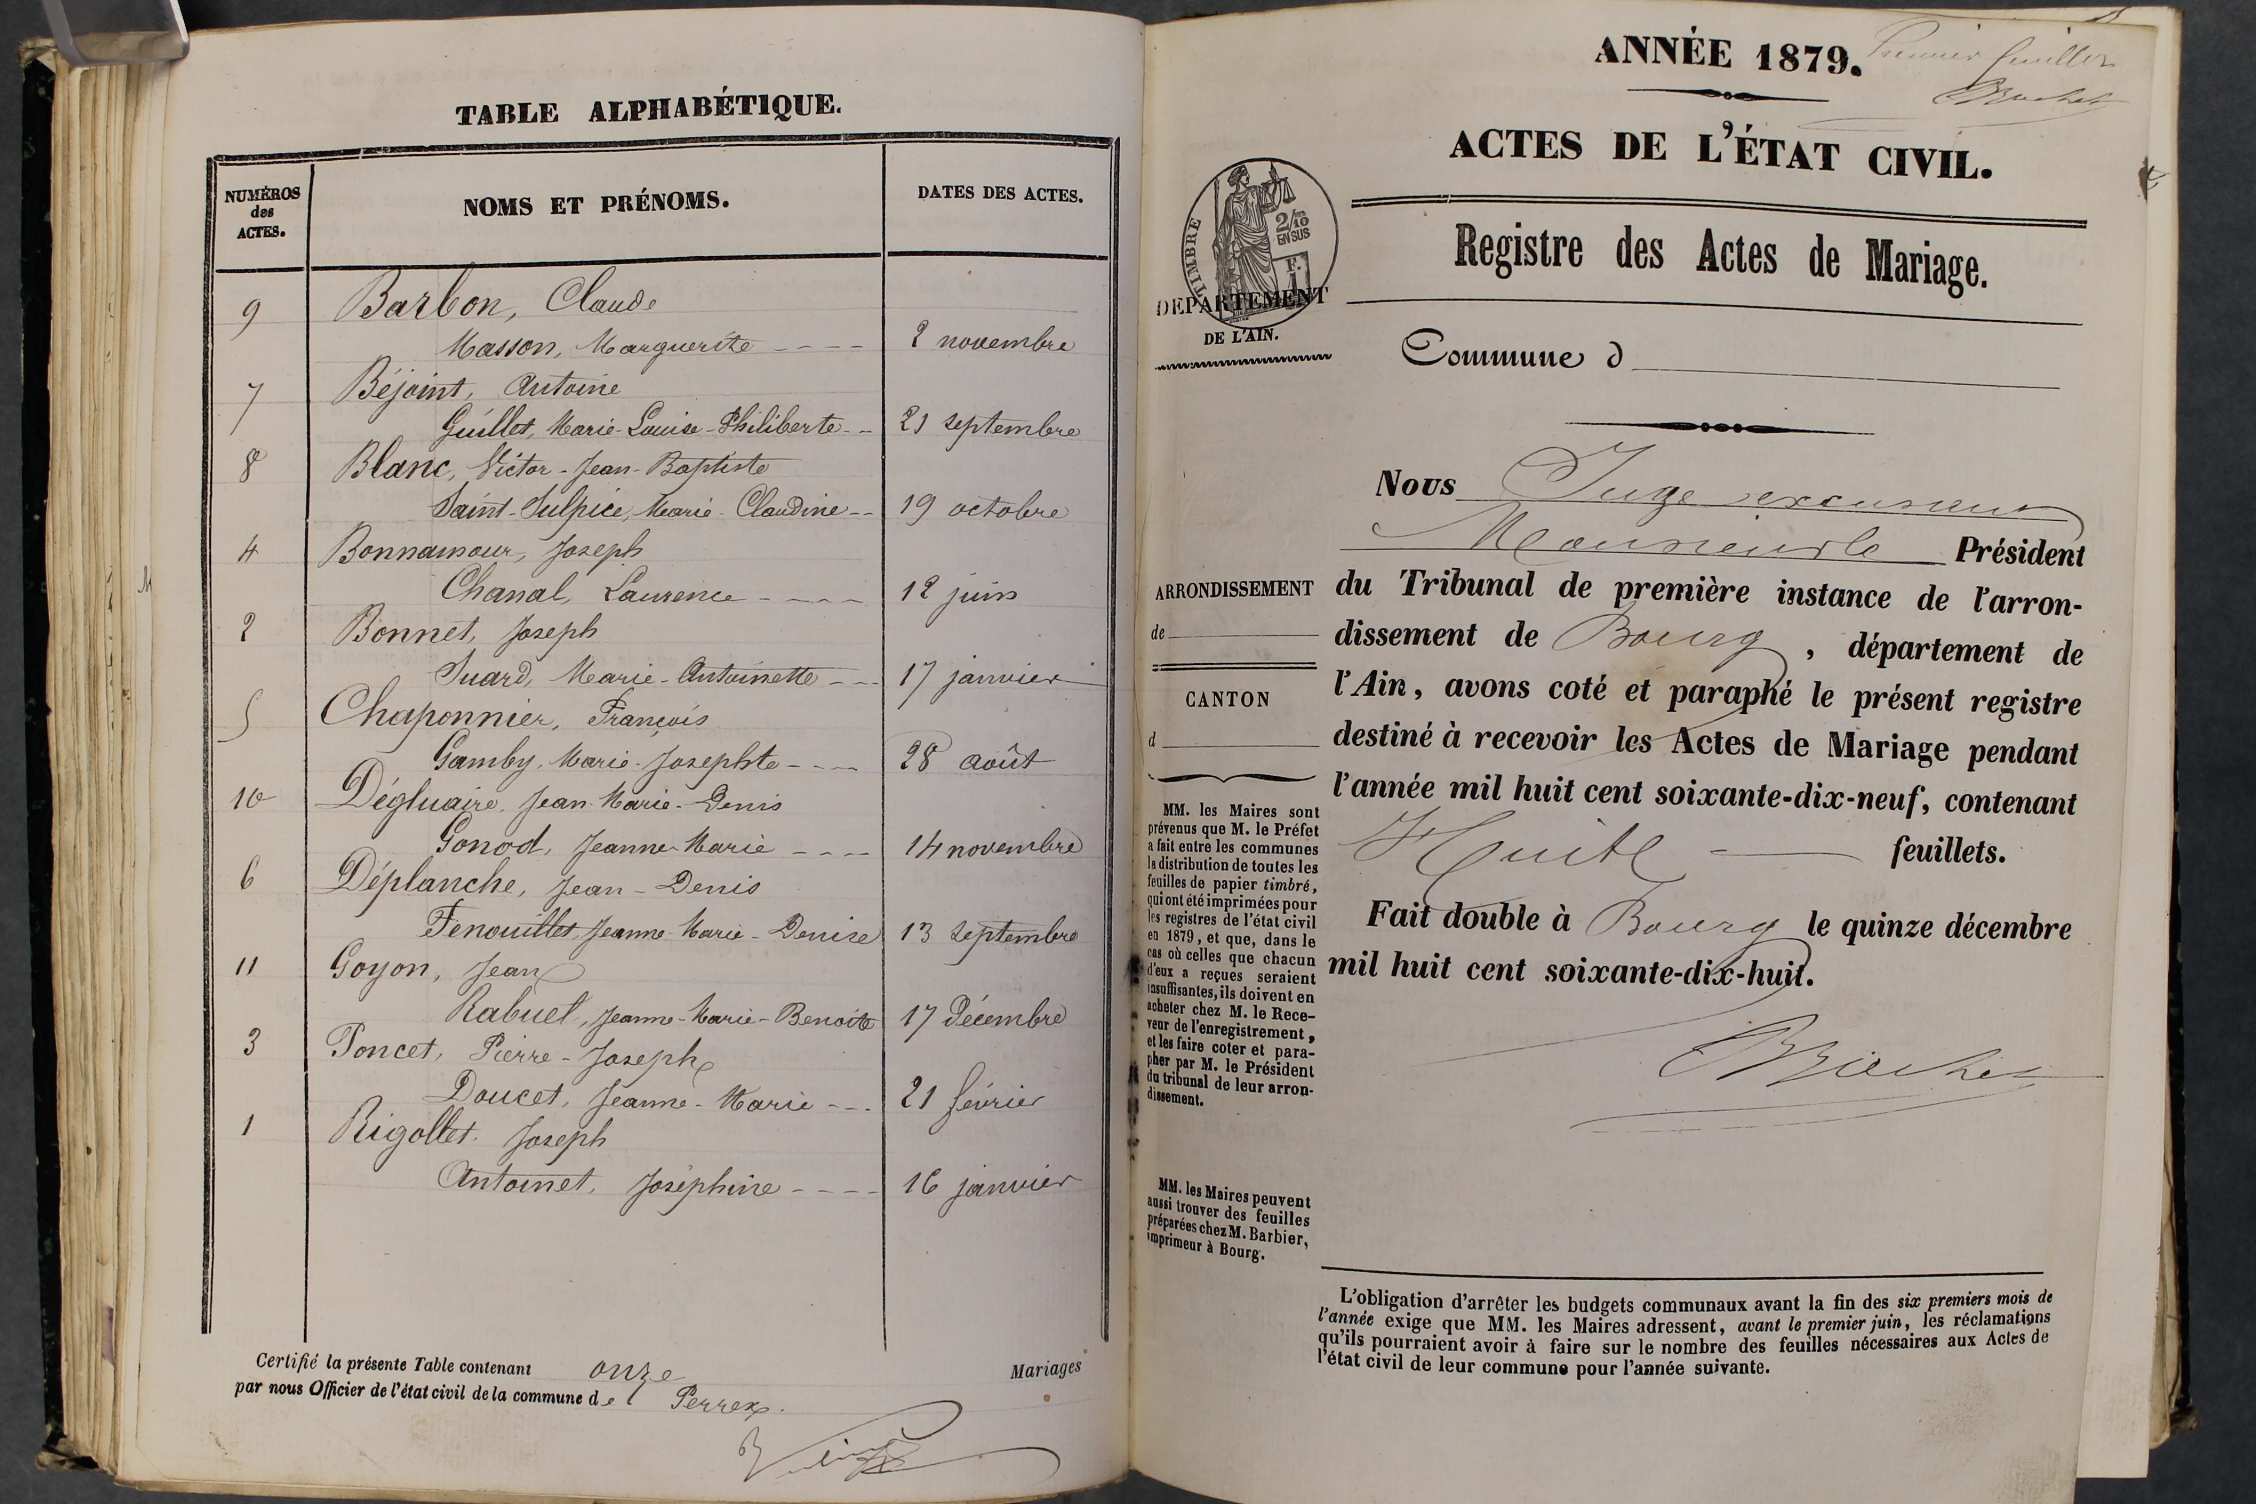 TABLE ALPHABÉTIQUE.
NUMÉROS
des
ACTES.
NOMS ET PRÉNOMS.
DATES DES ACTES.
9 Barbon, Claude
Masson, Marguerite - - - - 2 novembre
7 Béjoint, Antoine
Guillet, Marie-Louise-Philiberte - - 21 septembre
8 Blanc, Victor-Jean-Baptiste
Saint-Sulpice, Marie-Claudine - - 19 octobre
4 Bonnamour, Joseph
Chanal, Laurence - - - - 12 juin
2 Bonnet, Joseph
Suard, Marie-Antoinette - - - 17 janvier
5 Chaponnier, François
Gamby, Marie-Josephte - - - - 28 août
10 Dégluaire, Jean-Marie-Denis
Gonod, Jeanne-Marie - - - - 14 novembre
6 Déplanche, Jean-Denis
Fenouillet, Jeanne-Marie-Denise 13 septembre
11 Goyon, Jean
Rabuel, Jeanne-Marie-Benoite 17 décembre
3 Poncet, Pierre-Joseph
Doucet, Jeanne-Marie - - - 21 février
1 Rigollet, Joseph
Antoinet, Joséphine - - - - 16 janvier
Certifié la présente Table contenant onze Mariages
par nous Officier de l'état civil de la commune de Perrex.
ANNÉE 1879.
Premier feuillet
ACTES DE L'ÉTAT CIVIL.
Registre des Actes de Mariage.
TIMBRE
2/10
EN SUS
1 F.
DÉPARTEMENT
DE L'AIN.
Commune d
ARRONDISSEMENT
de
CANTON
d
MM. les Maires sont
prévenus que M. le Préfet
a fait entre les communes
la distribution de toutes les
feuilles de papier timbré,
qui ont été imprimées pour
les registres de l'état civil
en 1879, et que, dans le
cas où celles que chacun
d'eux a reçues seraient
insuffisantes, ils doivent en
acheter chez M. le Rece-
veur de l'enregistrement,
et les faire coter et para-
pher par M. le Président
du tribunal de leur arron-
dissement.
MM. les Maires peuvent
aussi trouver des feuilles
préparées chez M. Barbier,
imprimeur à Bourg.
Nous Juge
Monsieur le Président
du Tribunal de première instance de l'arron-
dissement de Bourg, département de
l'Ain, avons coté et paraphé le présent registre
destiné à recevoir les Actes de Mariage pendant
l'année mil huit cent soixante-dix-neuf, contenant
Huit feuillets.
Fait double à Bourg le quinze décembre
mil huit cent soixante-dix-huit.
L'obligation d'arrêter les budgets communaux avant la fin des six premiers mois de
l'année exige que MM. les Maires adressent, avant le premier juin, les réclamations
qu'ils pourraient avoir à faire sur le nombre des feuilles nécessaires aux Actes de
l'état civil de leur commune pour l'année suivante.